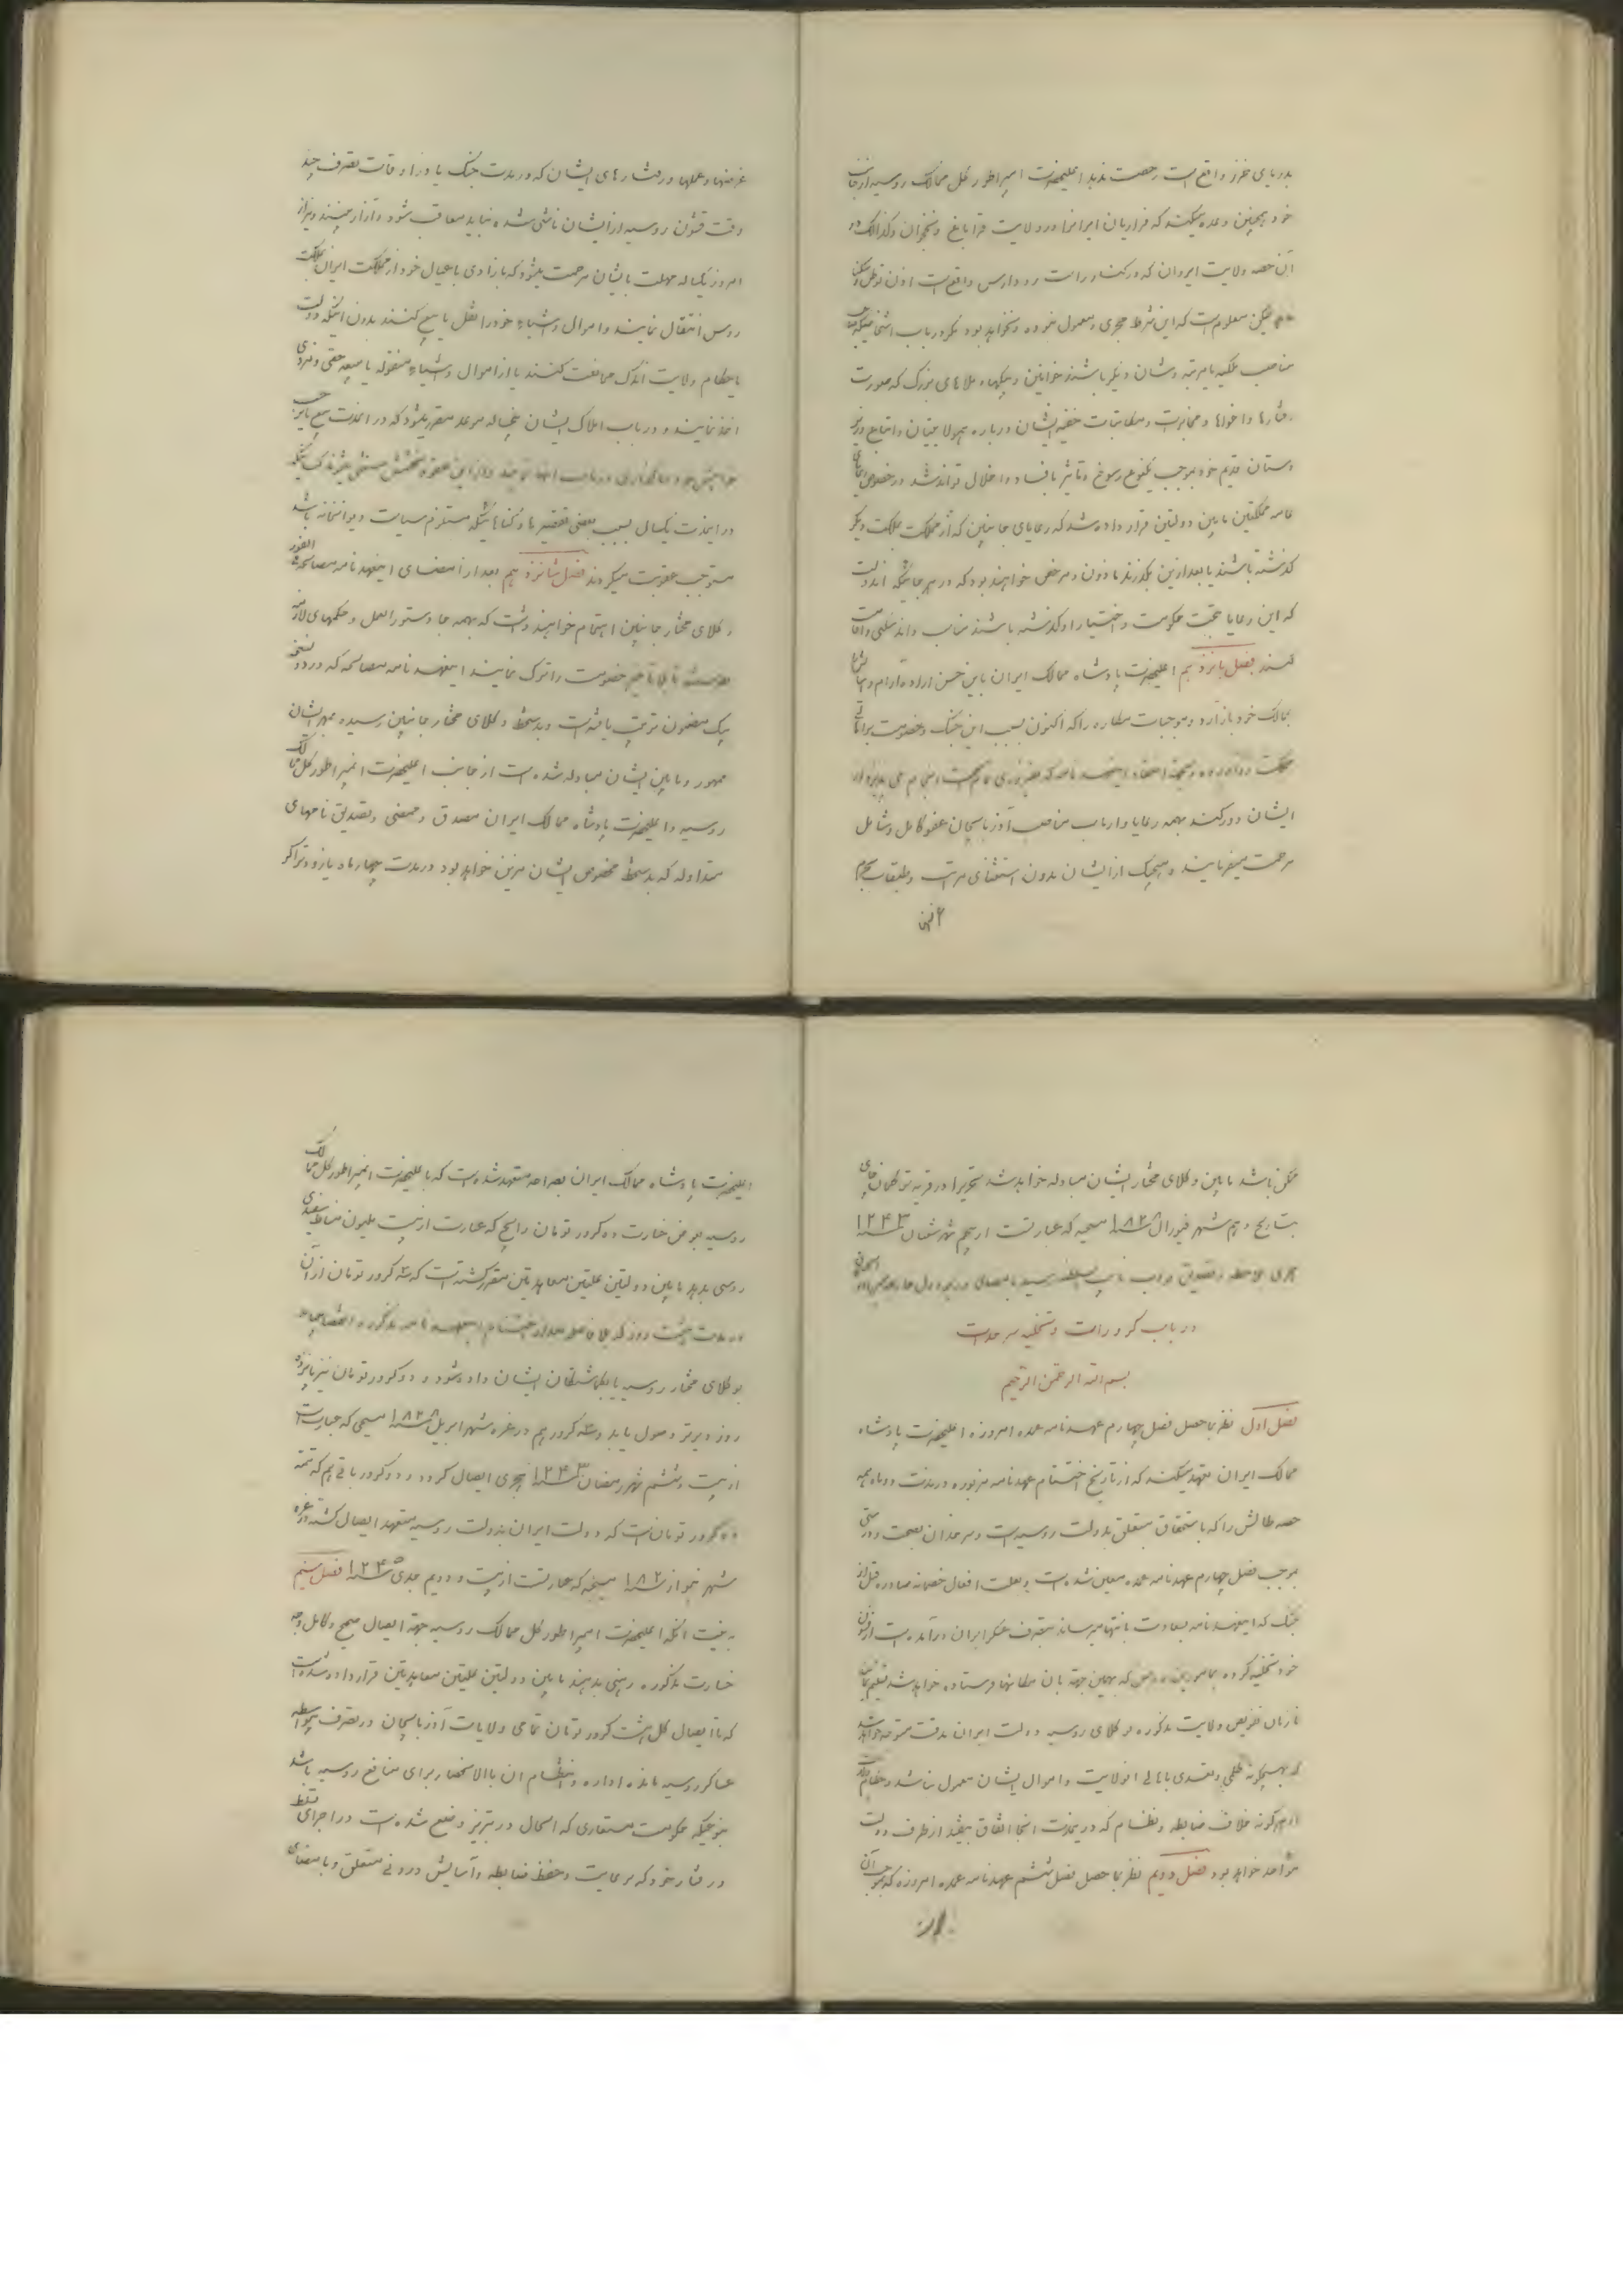 بدریای خزر واقع است رخصت ندهد اعلیحضرت امپراطور کل ممالک روسیه از جانب
خود همچنین وعده میکند که فراریان ایرانرا در ولایت قراباغ و نخجوان و کذالک در
آن حصه ولایت ایروان که در کنار راست رود ارس واقع است اذن توطن و سکنا
لیکن معلوم است که این شرط مجری و معمول نبوده و نخواهد بود مگر در باب اشخاصیکه
مناصب ملکیه یا مرتبه و شان دیگر باشند خوانین و بیکها و ملاهای بزرگ که صورت
رفتارها و اغواها و مخابرت و مکاتبات خفیه ایشان درباره همولایتیان و اتباع و زیر
دستان قدیم خود موجب یکنوع رسوخ و تاثیر بافساد و اخلال تواند شد در خصوص
عامه مملکتین مابین دولتین قرار داده شد که رعایای جانبین که از مملکت بمملکت دیگر
گذشته باشند یا بعد ازین بگذرند ماذون و مرخص خواهند بود که در هر جائیکه آندولت
که این رعایا بتحت حکومت و اختیار او گذشته باشند مناسب داند سکنی و اقامت
کنند فصل پانزدهم اعلیحضرت پادشاه ممالک ایران باین حسن اراده آرام و
بممالک خود باز آرد و موجبات مکاره را که اکنون بسبب این جنگ و خصومت بر اهالی
مملکت
ایشان دور کند بهمه رعایا و ارباب مناصب آذربایجان عفو کامل و شامل
مرحمت میفرمایند و هیچیک از ایشان بدون استثنای مراتب و طبقات بجرم
عرضها و عملها و رفتارهای ایشان که در مدت جنگ یا در اوقات تصرف چند
وقت قشون روسیه از ایشان ناشی شده نباید معاقب شود و آزار ببینند و نیز از
امروز یکساله مهلت بایشان مرحمت میشود که بآزادی با عیال خود از مملکت ایران بمملکت
روس انتقال نمایند و اموال و اشیاء خود را نقل یا بیع کنند بدون اینکه دولت
یا حکام ولایت اندک ممانعت کنند یا از اموال و اشیاء منقوله یا مبیعه حقی و مزدی
اخذ نمایند و در باب املاک ایشان پنجساله موعد مقرر میشود که در آنمدت بیع یا بر حسب
خواهش خود
در اینمدت یکسال بسبب بعضی تقصیرها و گناهائیکه مستلزم سیاست دیوانخانه باشد
مستوجب عقوبت میگردند فصل شانزدهم بعد از امضای اینعهدنامه مصالحه فی الفور
وکلای مختار جانبین اهتمام خواهند داشت که بهمه جا دستورالعمل و حکمهای لازمه
بفرستند تا بلا تاخیر خصومت را ترک نمایند اینعهدنامه مصالحه که در دو نسخه
بیک مضمون ترتیب یافته است و بدستخط وکلای مختار جانبین رسیده بمهر ایشان
ممهور و مابین ایشان مبادله شده است از جانب اعلیحضرت امپراطور کل ممالک
روسیه و اعلیحضرت پادشاه ممالک ایران مصدق و ممضی و تصدیق نامهای
متداوله که بدستخط مخصوص ایشان مزین خواهد بود در مدت چهار ماه یا زودتر اگر
ممکن باشد مابین وکلای مختار ایشان مبادله خواهد شد تحریرا در قریه ترکمان چای
بتاریخ دهم شهر فیورال ۱۸۲۸ مسیحیه که عبارتست از پنجم شهر شعبان ۱۲۴۳
هجری بملاحظه و تصدیق نواب نایب السلطنه رسید
در باب کرورات و تخلیه سرحدات
بسم الله الرحمن الرحیم
فصل اول نظر بماحصل فصل چهارم عهدنامه عمده امروزه اعلیحضرت پادشاه
ممالک ایران متعهد میکند که از تاریخ اختتام عهدنامه مزبوره در مدت دو ماه همه
حصه طالش را که باستحقاق متعلق بدولت روسیه است و سرحد آن بصحت و درستی
بموجب فصل چهارم عهدنامه عمده معین شده است و بعلت افعال خصمانه صادره قبل از
جنگ که اینعهدنامه بسعادت بانتها میرساند بتصرف عسکر ایران درآمده است از قشون
خود تخلیه کرده که بهمین جهة بان مکانها فرستاده خواهد شد تسلیم نماید
تا زمان تفویض ولایت مذکوره بوکلای روسیه دولت ایران بدقت متوجه خواهد شد
که هیچگونه ظلمی و تعدی باهالی آنولایت و اموال ایشان معمول نباشد و حکام ولایت
از هر گونه خلاف ضابطه و نظام که در ینمدت آنجا اتفاق بیفتد از طرف دولت
مؤاخذ خواهد بود فصل دویم نظر بماحصل فصل ششم عهدنامه عمده امروزه که بموجب آن
اعلیحضرت پادشاه ممالک ایران بصراحه متعهد شده است که باعلیحضرت امپراطور کل ممالک
روسیه بعوض خسارت ده کرور تومان رایج که عبارت از بیست ملیون مناط سفیدی
روسی بدهد مابین دولتین علیتین معاهدتین مقرر گشته است که سه کرور تومان از آن
در مدت هشت روز که بلا فاصله بعد از اختتام اینعهدنامه مذکوره
بوکلای مختار روسیه یا گماشتگان ایشان داده شود و دو کرور تومان نیز پانزده
روز دیرتر وصول یابد و سه کرور هم در غره شهر اپریل ۱۸۲۸ مسیحی که عبارت است
از بیست و ششم شهر رمضان ۱۲۴۳ هجری ایصال گردد و دو کرور باقی هم که تتمه
ده کرور تومان است که دولت ایران بدولت روسیه متعهد ایصال گشته در غره
شهر ینواز ۱۸۳۰ مسیحیه که عبارتست از بیست و دویم جدی ۱۲۴۵ فصل سیم
به نیت آنکه اعلیحضرت امپراطور کل ممالک روسیه جهة ایصال صحیح و کامل وجه
خسارت مذکوره رهنی بدهند مابین دولتین علیتین معاهدتین قرارداد شده است
که تا ایصال کل هشت کرور تومان تمامی ولایات آذربایجان در تصرف بیواسطه
عساکر روسیه مانده اداره و انتظام آن بالانحصار برای منافع روسیه باشد
بنوعیکه حکومت مستعاری که الحال در تبریز وضع شده است در اجرای تسلط
و رفتار خود که برعایت و حفظ ضابطه و آسایش درونی متعلق و بامضای